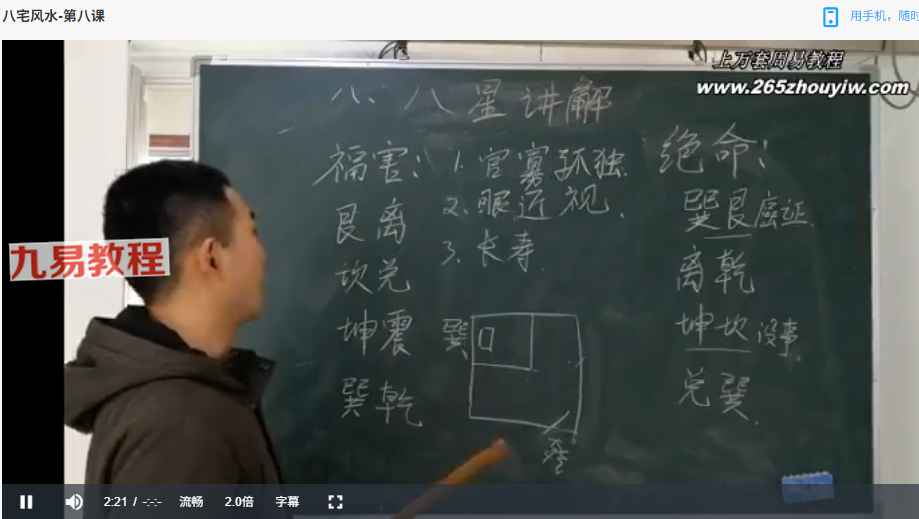 八宅风水-第八课
用手机，随时
上万套周易教程
www.265zhouyiw.com
八、八星讲解
福害：1.官寡孤独.
2.眼近视.
3.长寿.
艮离
坎兑
坤震
巽乾
巽
绝命：
巽艮 癌证.
离乾
坤坎 没事.
兑巽.
九易教程
2:21 / -:-:-
流畅
2.0倍
字幕